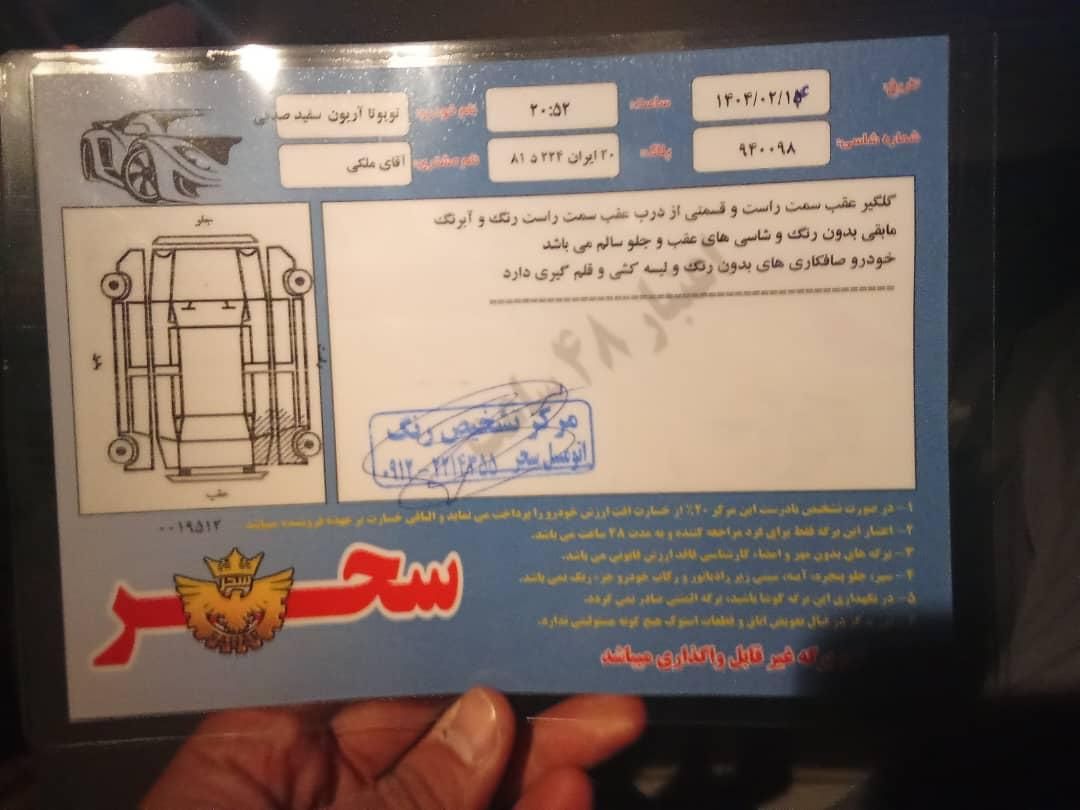 تاریخ: ۱۴۰۴/۰۲/۱۴ ساعت: ۲۰:۵۲ نام خودرو: تویوتا آریون سفید صدفی
شماره شاسی: ۹۴۰۰۹۸ پلاک: ۲۰ ایران ۲۲۴ د ۸۱ نام مشتری: آقای ملکی
گلگیر عقب سمت راست و قسمتی از درب عقب سمت راست رنگ و آبرنگ
مابقی بدون رنگ و شاسی های عقب و جلو سالم می باشد
خودرو صافکاری های بدون رنگ و لیسه کشی و قلم گیری دارد
اعتبار ۴۸ ساعت
جلو
عقب
مرکز تشخیص رنگ
اتوعسل سحر
۰۹۱۲-۲۲۱۴۳۵۵
۰۰۱۹۵۱۲
۱- در صورت تشخیص نادرست این مرکز ۲۰٪ از خسارت افت ارزش خودرو را پرداخت می نماید و الباقی خسارت بر عهده فروشنده میباشد
۲- اعتبار این برگه فقط برای فرد مراجعه کننده و به مدت ۴۸ ساعت می باشد.
۳- برگه های بدون مهر و امضاء کارشناسی فاقد ارزش قانونی می باشد.
۴- سپر، جلو پنجره، آینه، سینی زیر رادیاتور و رکاب خودرو جزء رنگ نمی باشد.
۵- در نگهداری این برگه کوشا باشید، برگه المثنی صادر نمی گردد.
در قبال تعویض اتاق و قطعات استوک هیچ گونه مسئولیتی ندارد.
برگه غیر قابل واگذاری میباشد
سحر
سحر
SAHAR